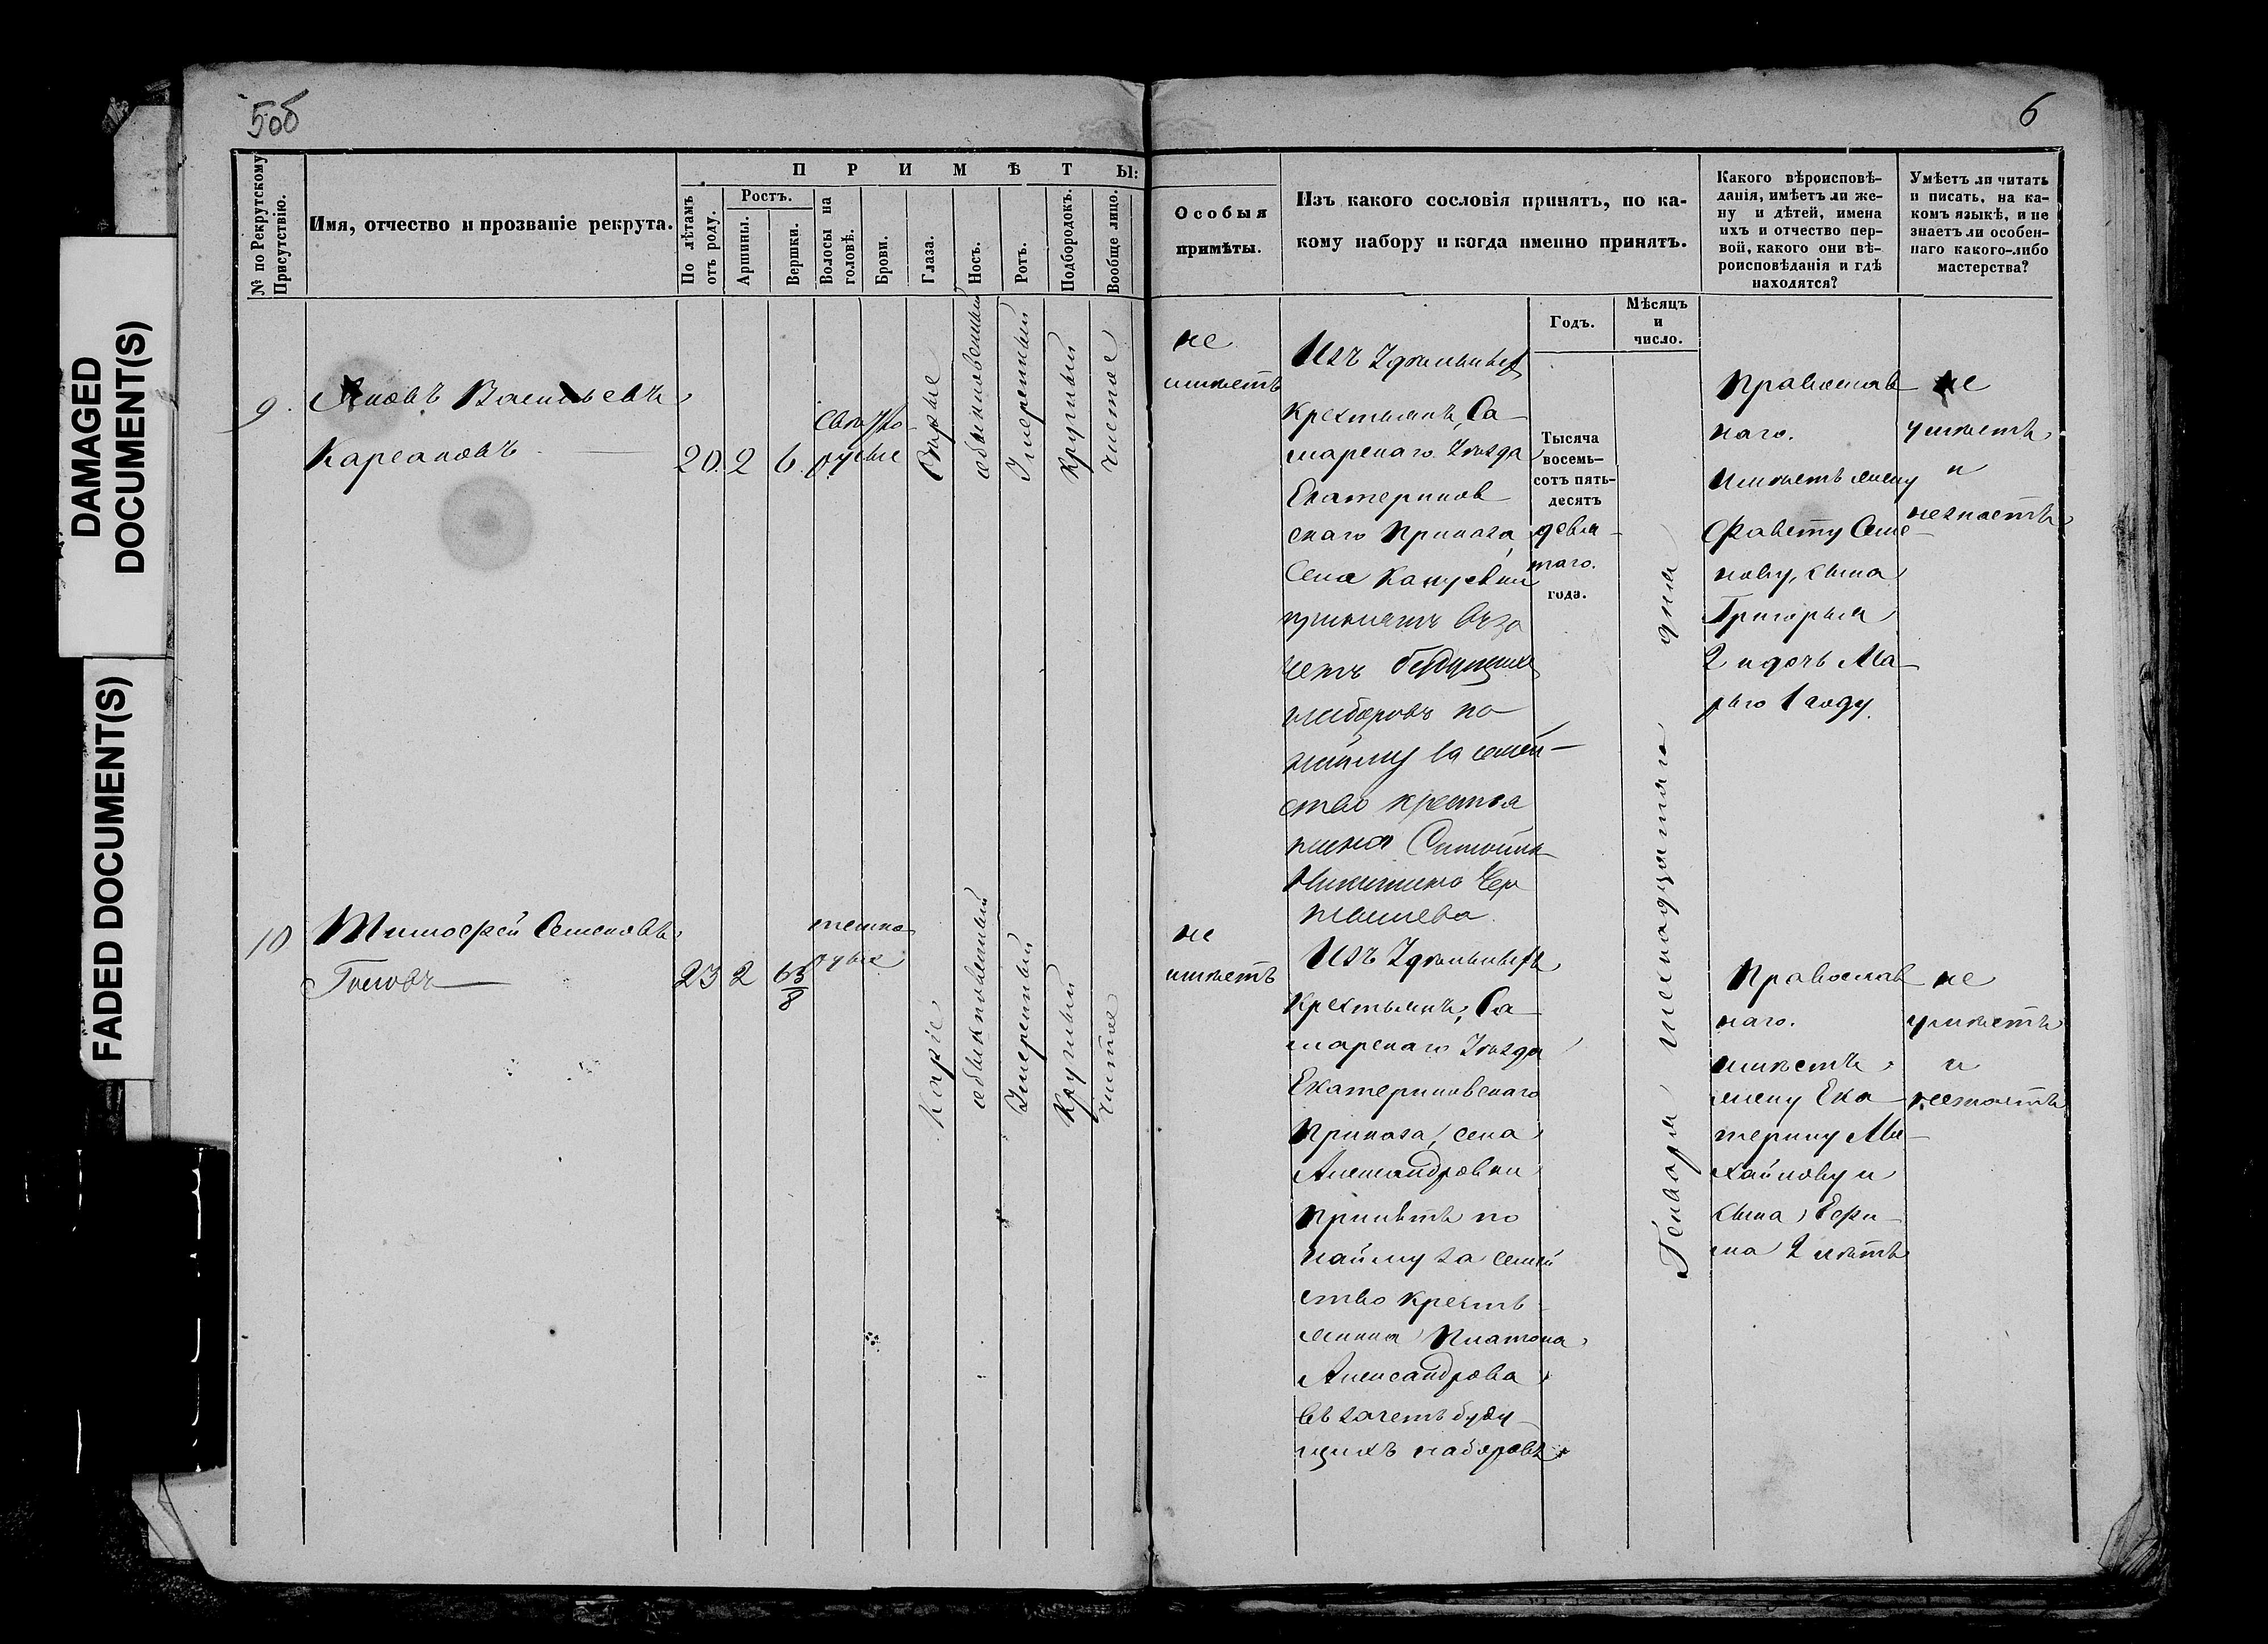 DAMAGED
DOCUMENT(S)
FADED DOCUMENT(S)
5об
6
№ по Рекрутскому Присутствію.
Имя, отчество и прозваніе рекрута.
П Р И М Ѣ Т Ы:
По лѣтамъ отъ роду.
Ростъ.
Аршины.
Вершки.
Волосы на головѣ.
Брови.
Глаза.
Носъ.
Ротъ.
Подбородокъ.
Вообще лицо.
Особыя
примѣты.
Изъ какого сословія принятъ, по ка-
кому набору и когда именно принятъ.
Годъ.
Мѣсяцъ
и
число.
Какого вѣроисповѣ-
данія, имѣетъ ли же-
ну и дѣтей, имена
ихъ и отчество пер-
вой, какого они вѣ-
роисповѣданія и гдѣ
находятся?
Умѣетъ ли читать
и писать, на ка-
комъ языкѣ, и не
знаетъ ли особен-
наго какого-либо
мастерства?
9.
Яковъ Васильевъ
Карсаковъ
20. 2 6.
свѣтло-
русые
обыкновенный
Умѣренный
Круглый
чистое
не
имѣетъ
Изъ Удѣльныхъ
Крестьянъ, Са-
марскаго Уѣзда
Екатеринов
скаго Приказа
Села
принятъ въ за
четъ будущихъ
наборовъ по
найму за семей-
ство крестья
нина
Никитина Чер
нышева.
Тысяча
восемь-
сотъ пять-
десятъ
девя-
таго.
года.
Генваря шеснадцатаго дня
Православ
наго.
Имѣетъ жену
Семе-
нову, сына
Григорья
2 и дочь Ма-
рью 1 году.
не
умѣетъ
и
незнаетъ
10
Тимофей Семеновъ
23 2 6 3/8
темно
русые
Каріе
обыкновенный
Умѣренный
Круглый
чистое
не
имѣетъ
Изъ Удѣльныхъ
Крестьянъ, Са-
марскаго Уѣзда
Екатериновскаго
Приказа, села
Александровки
Принятъ по
найму за семей
ство Кресть-
янина Платона
Александрова
въ зачетъ буду-
щихъ наборовъ
Православ
наго.
имѣетъ
жену Ека
терину Ми-
хайлову и
сына Ефи-
ма 2 лѣтъ
не
умѣетъ
и
незнаетъ